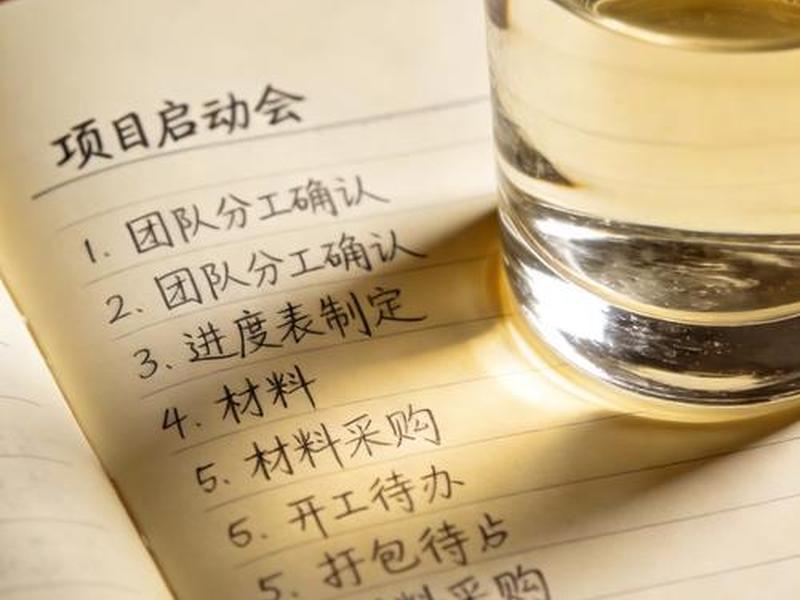 项目启动会
1. 团队分工确认
2. 团队分工确认
3. 进度表制定
4. 材料
5. 材料采购
6. 开工待办
5. 打包待占
料采购